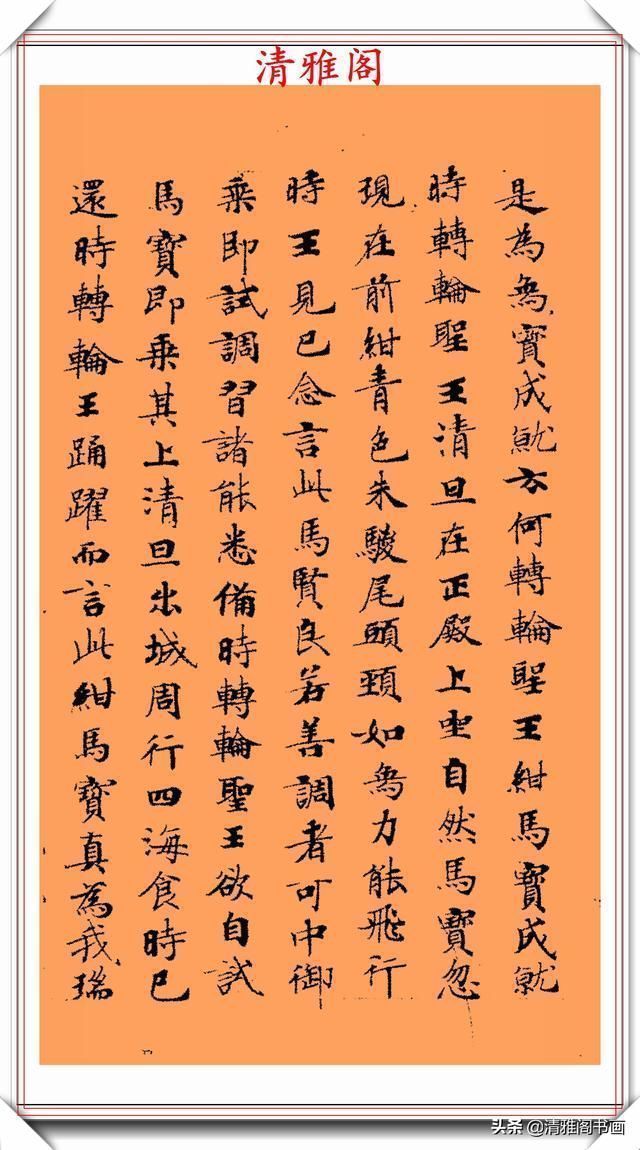 清雅阁
是為象寶成就云何轉輪聖王紺馬寶成就
時轉輪聖王清旦在正殿上坐自然馬寶忽
現在前紺青色朱駿尾頭頸如象力能飛行
時王見已念言此馬賢良若善調者可中御
乘即試調習諸能悉備時轉輪聖王欲自試
馬寶即乘其上清旦出城周行四海食時已
還時轉輪王踊躍而言此紺馬寶真為我瑞
头条@清雅阁书画